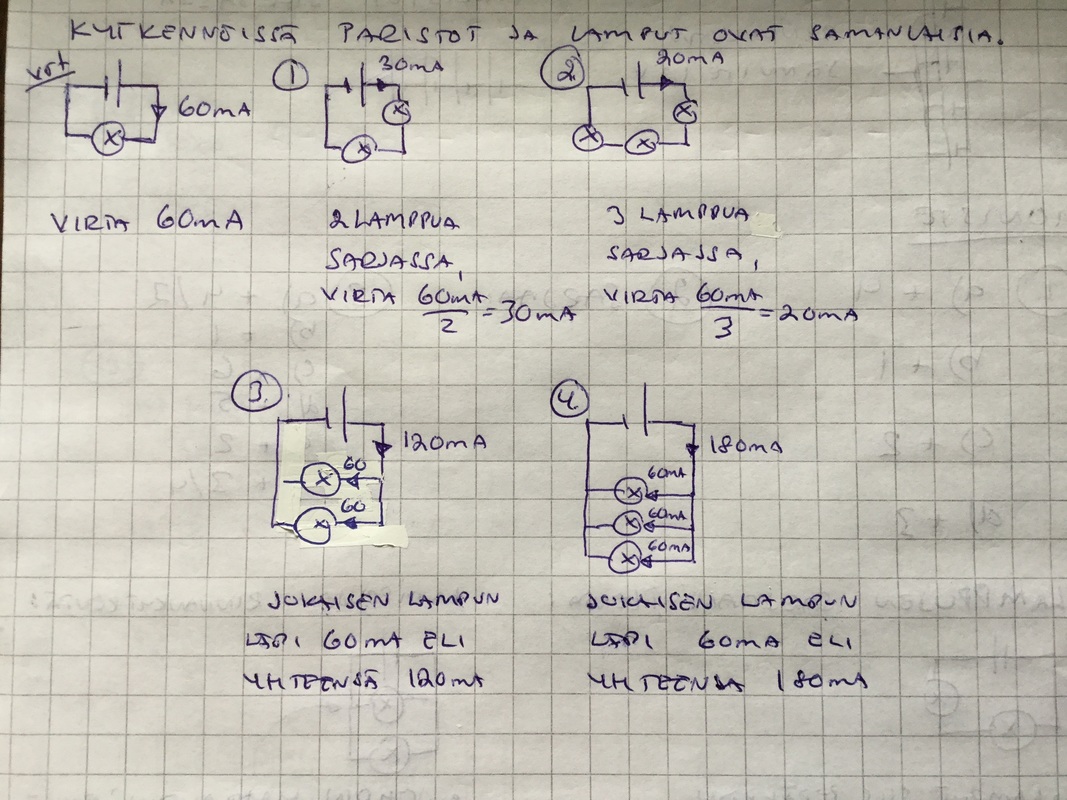 KYTKENNÖISSÄ PARISTOT JA LAMPUT OVAT SAMANLAISIA.
VRT
60mA
1
30mA
2
20mA
VIRTA 60mA
2 LAMPPUA
SARJASSA,
VIRTA 60mA/2 = 30mA
3 LAMPPUA
SARJASSA,
VIRTA 60mA/3 = 20mA
3
120mA
60
60
4
180mA
60mA
60mA
60mA
JOKAISEN LAMPUN
LÄPI 60mA ELI
YHTEENSÄ 120mA
JOKAISEN LAMPUN
LÄPI 60mA ELI
YHTEENSÄ 180mA